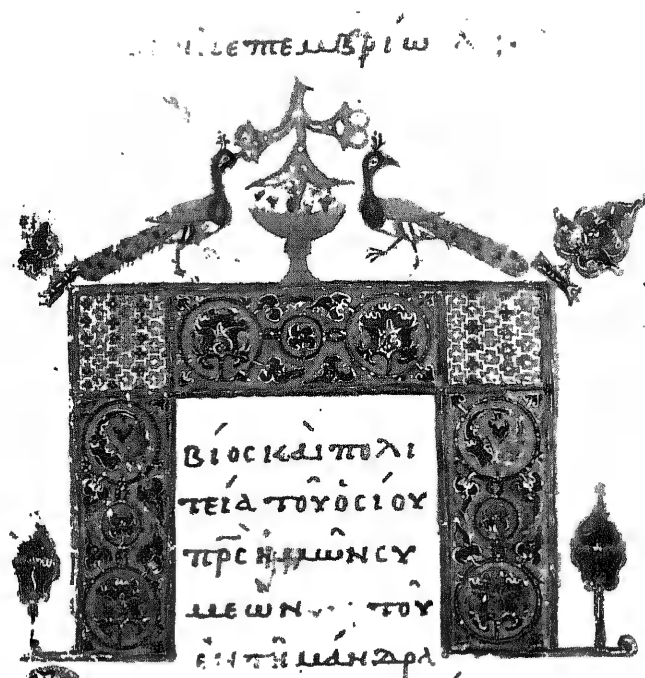 σεπτεμβρίω
βίος και πολι
τεία του οσίου
πρς ημών συ
μεών του
εν τη μάνδρα